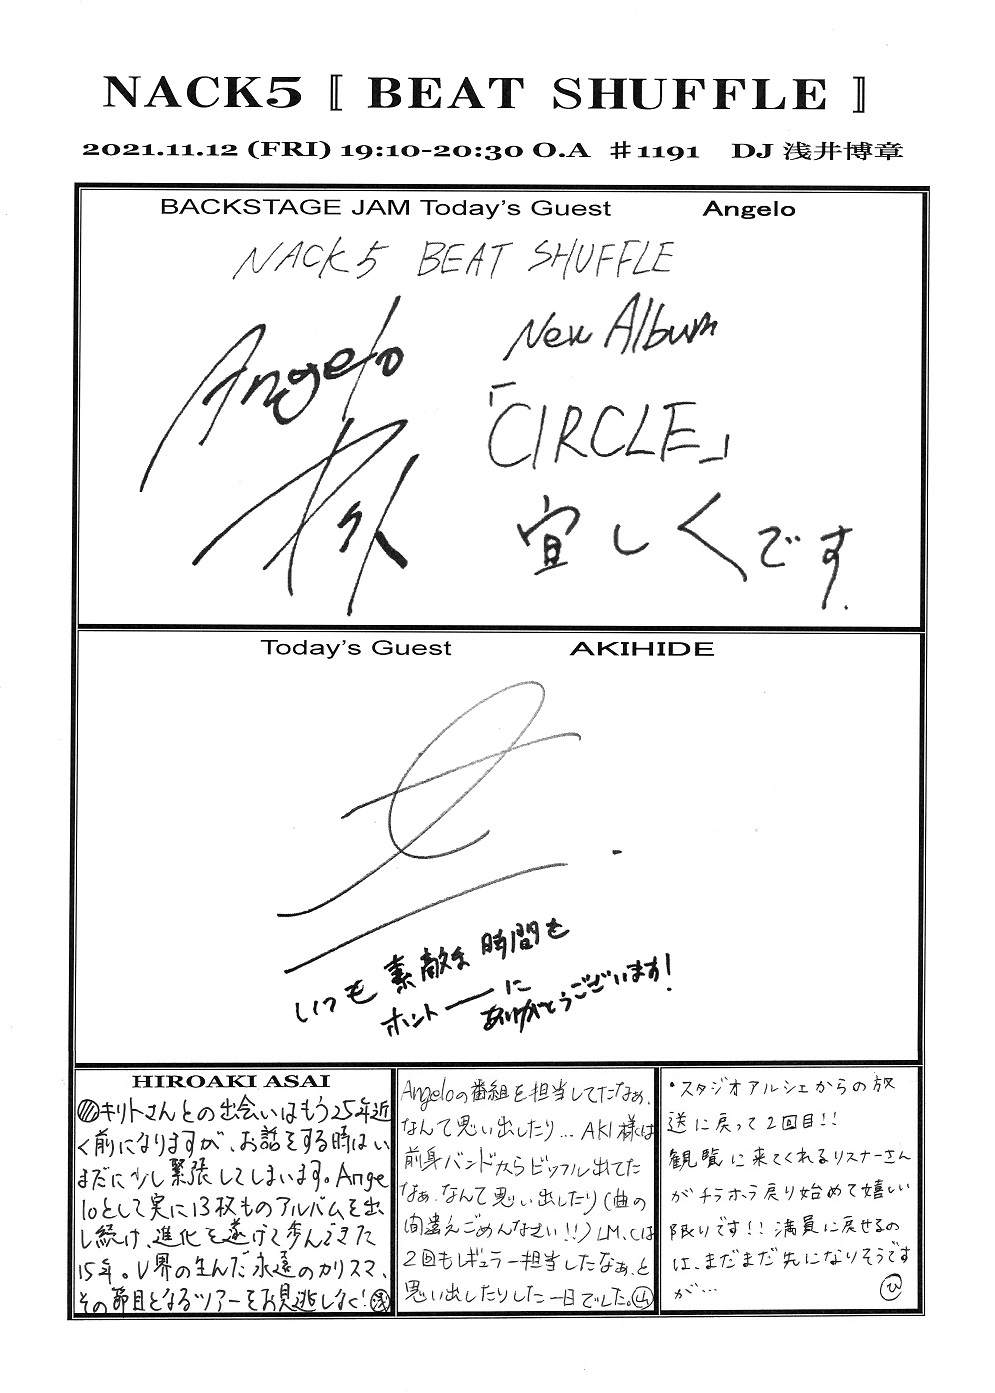 NACK5 〚 BEAT SHUFFLE 〛
2021.11.12 (FRI) 19:10-20:30 O.A ♯1191 DJ 浅井博章
BACKSTAGE JAM Today's Guest Angelo
NACK5 BEAT SHUFFLE
Angelo
New Album
「CIRCLE」
宜しくです.
Today's Guest AKIHIDE
いつも素敵な時間を
ホントーに
ありがとうございます!
HIROAKI ASAI
キリトさんとの出会いはもう25年近
く前になりますが、お話をする時はい
まだに少し緊張してしまいます。Ange
loとして実に13枚ものアルバムを出
し続け、進化を遂げて歩んできた
15年。V界の生んだ永遠のカリスマ、
その節目となるツアーをお見逃しなく!浅
Angeloの番組を担当してたなぁ、
なんて思い出したり…AKI様は
前身バンドからビッフル出てた
なぁ、なんて思い出したり(曲の
間違えごめんなさい!!)LM.Cは
2回もレギュラー担当したなぁ、と
思い出したりした一日でした。山
・スタジオアルシェからの放
送に戻って2回目!!
観覧に来てくれるリスナーさん
がチラホラ戻り始めて嬉しい
限りです!!満員に戻せるの
は、まだまだ先になりそうです
が… ひ